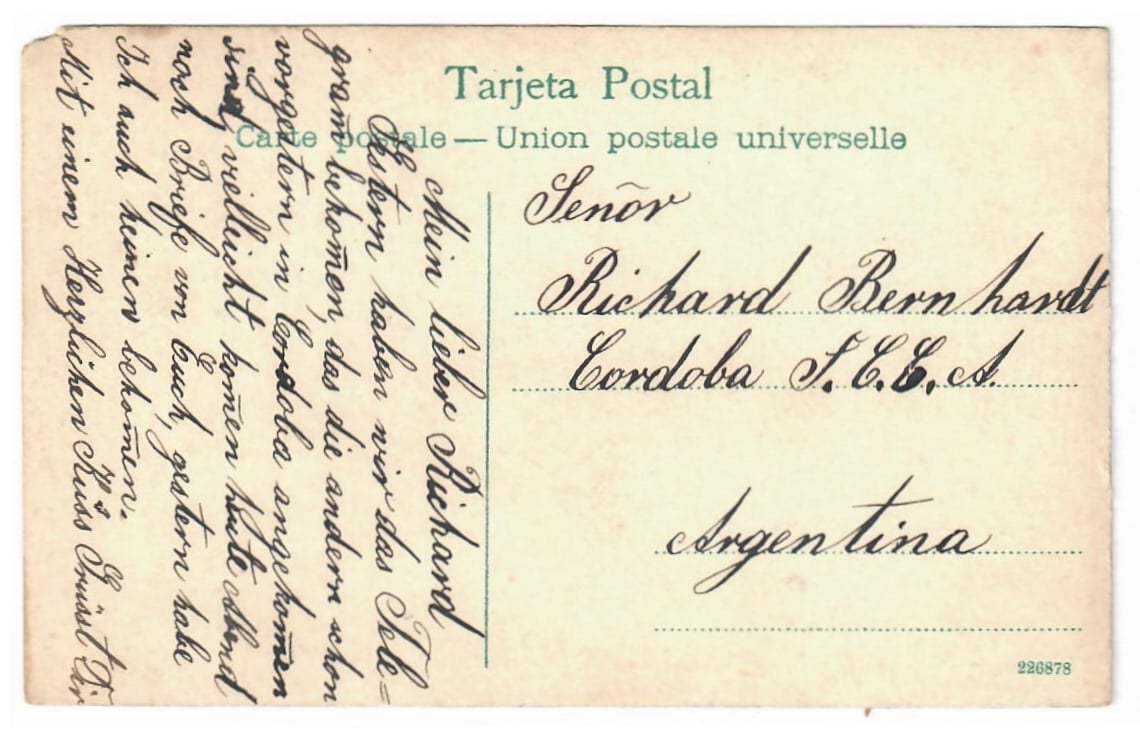 Tarjeta Postal
Carte postale — Union postale universelle
Mein lieber Richard
Gestern haben wir das Tele=
gram̅ bekom̅en, das die andern schon
vorgestern in Cordoba angekom̅en
sind, vielleicht kom̅en heute Abend
noch Briefe von Euch, gestern habe
Ich auch keinen bekom̅en.
Mit einem Herzlichen Kuss Grüsst Dir
Senōr
Richard Bernhardt
Cordoba F.C.C.A.
Argentina
226878